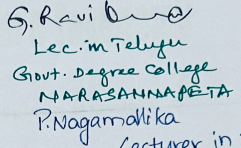 G. Ravi
Lec. in Telugu
Govt. Degree College
NARASANNAPETA
P. Nagamallika
Lecturer in